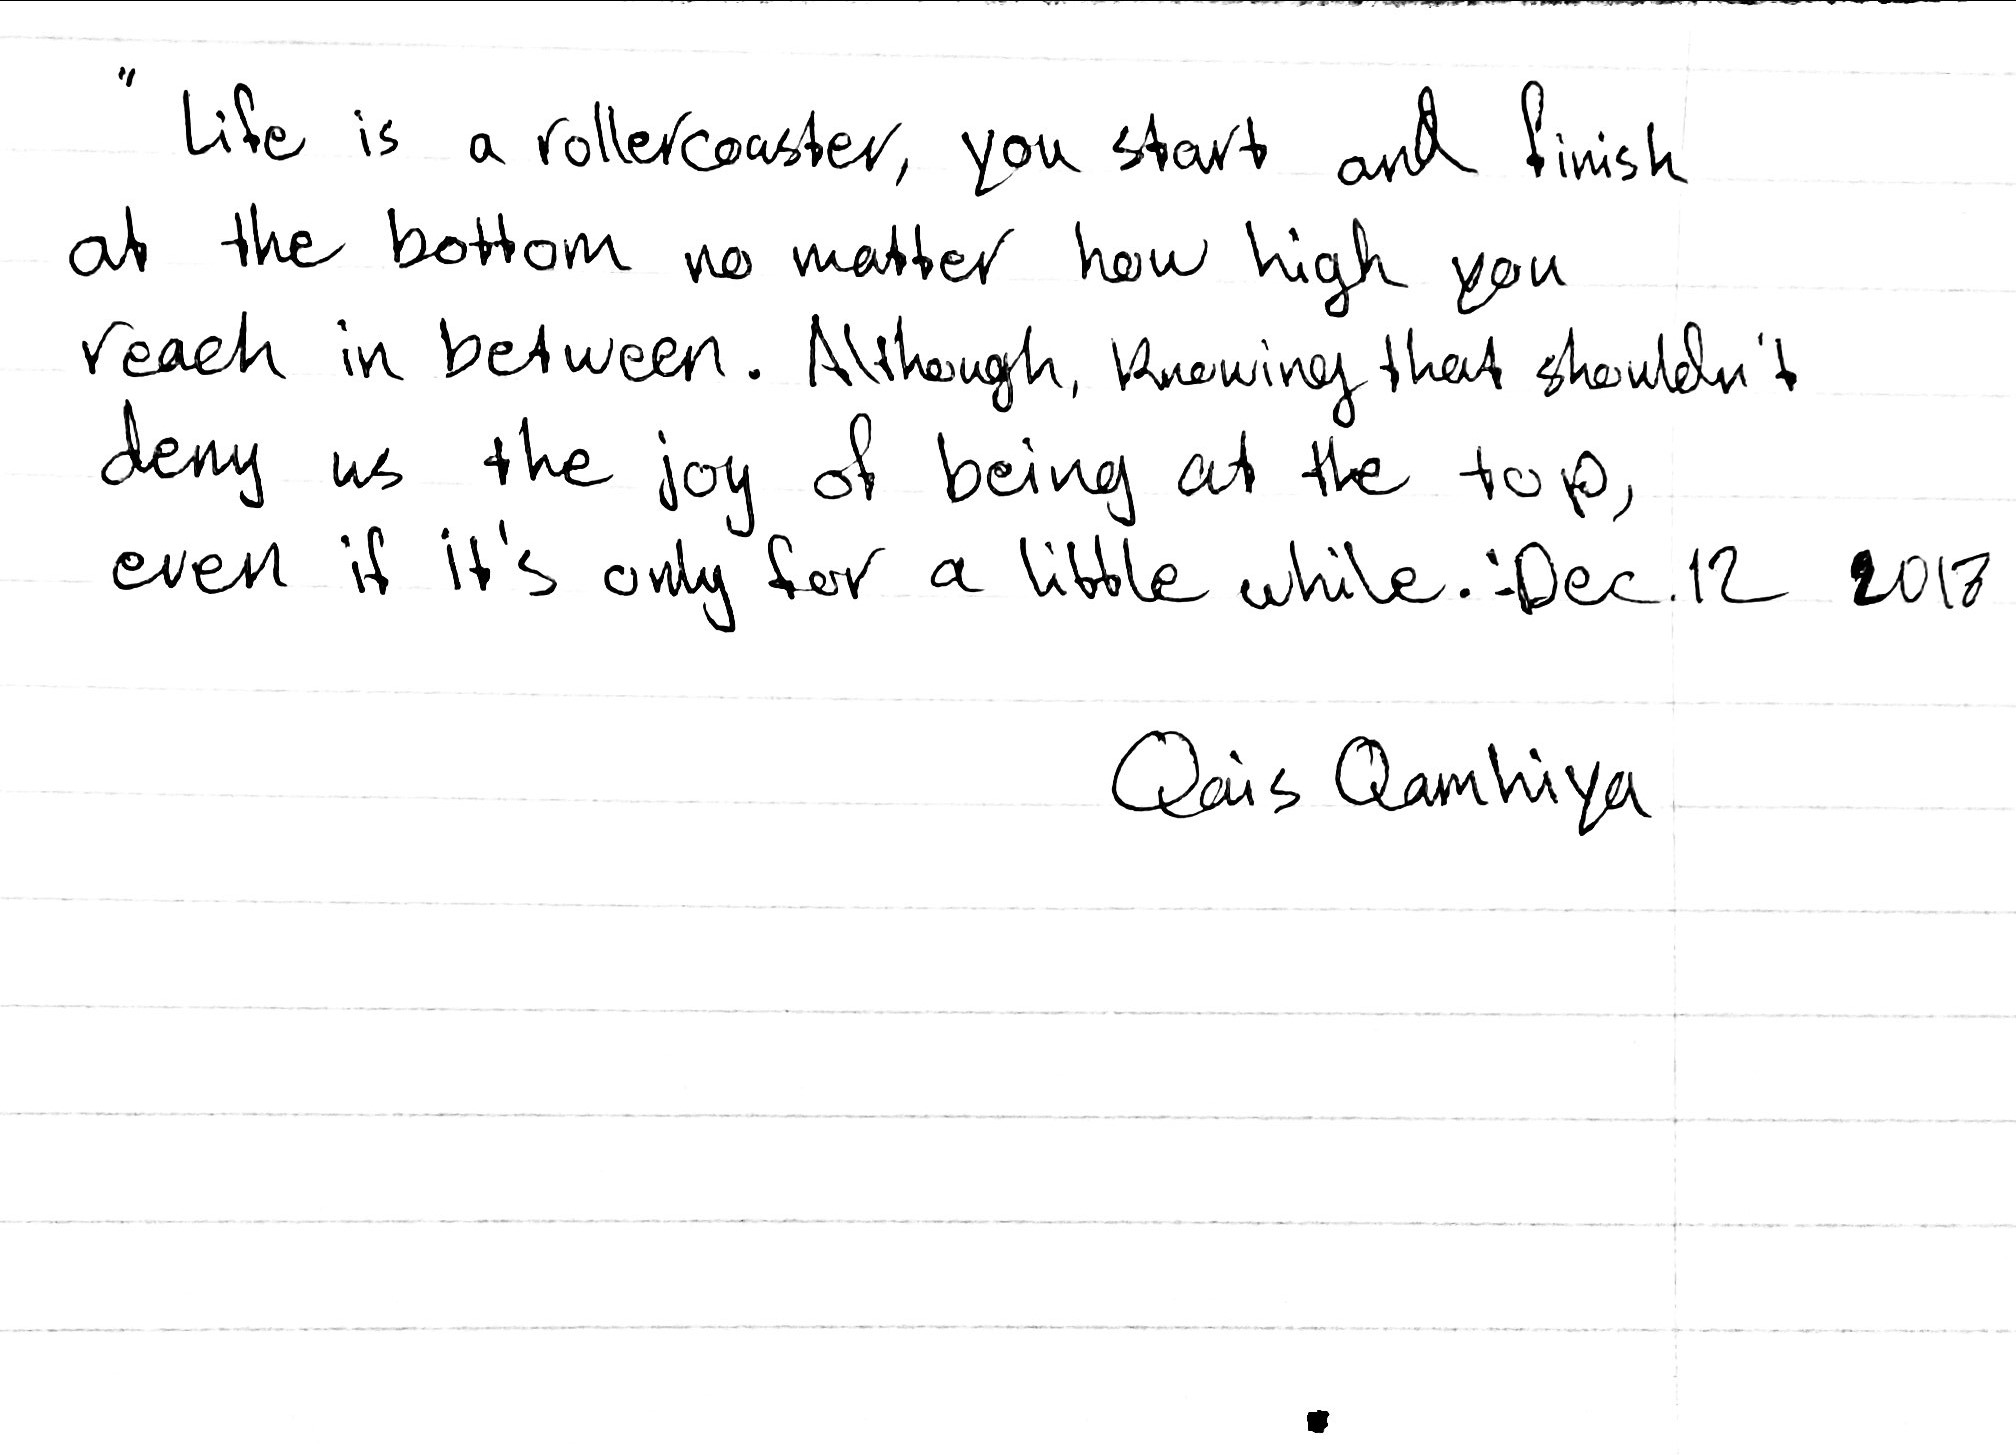 " Life is a rollercoaster, you start and finish
at the bottom no matter how high you
reach in between. Although, knowing that shouldn't
deny us the joy of being at the top,
even if it's only for a little while." Dec. 12 2017
Qais Qamhiya